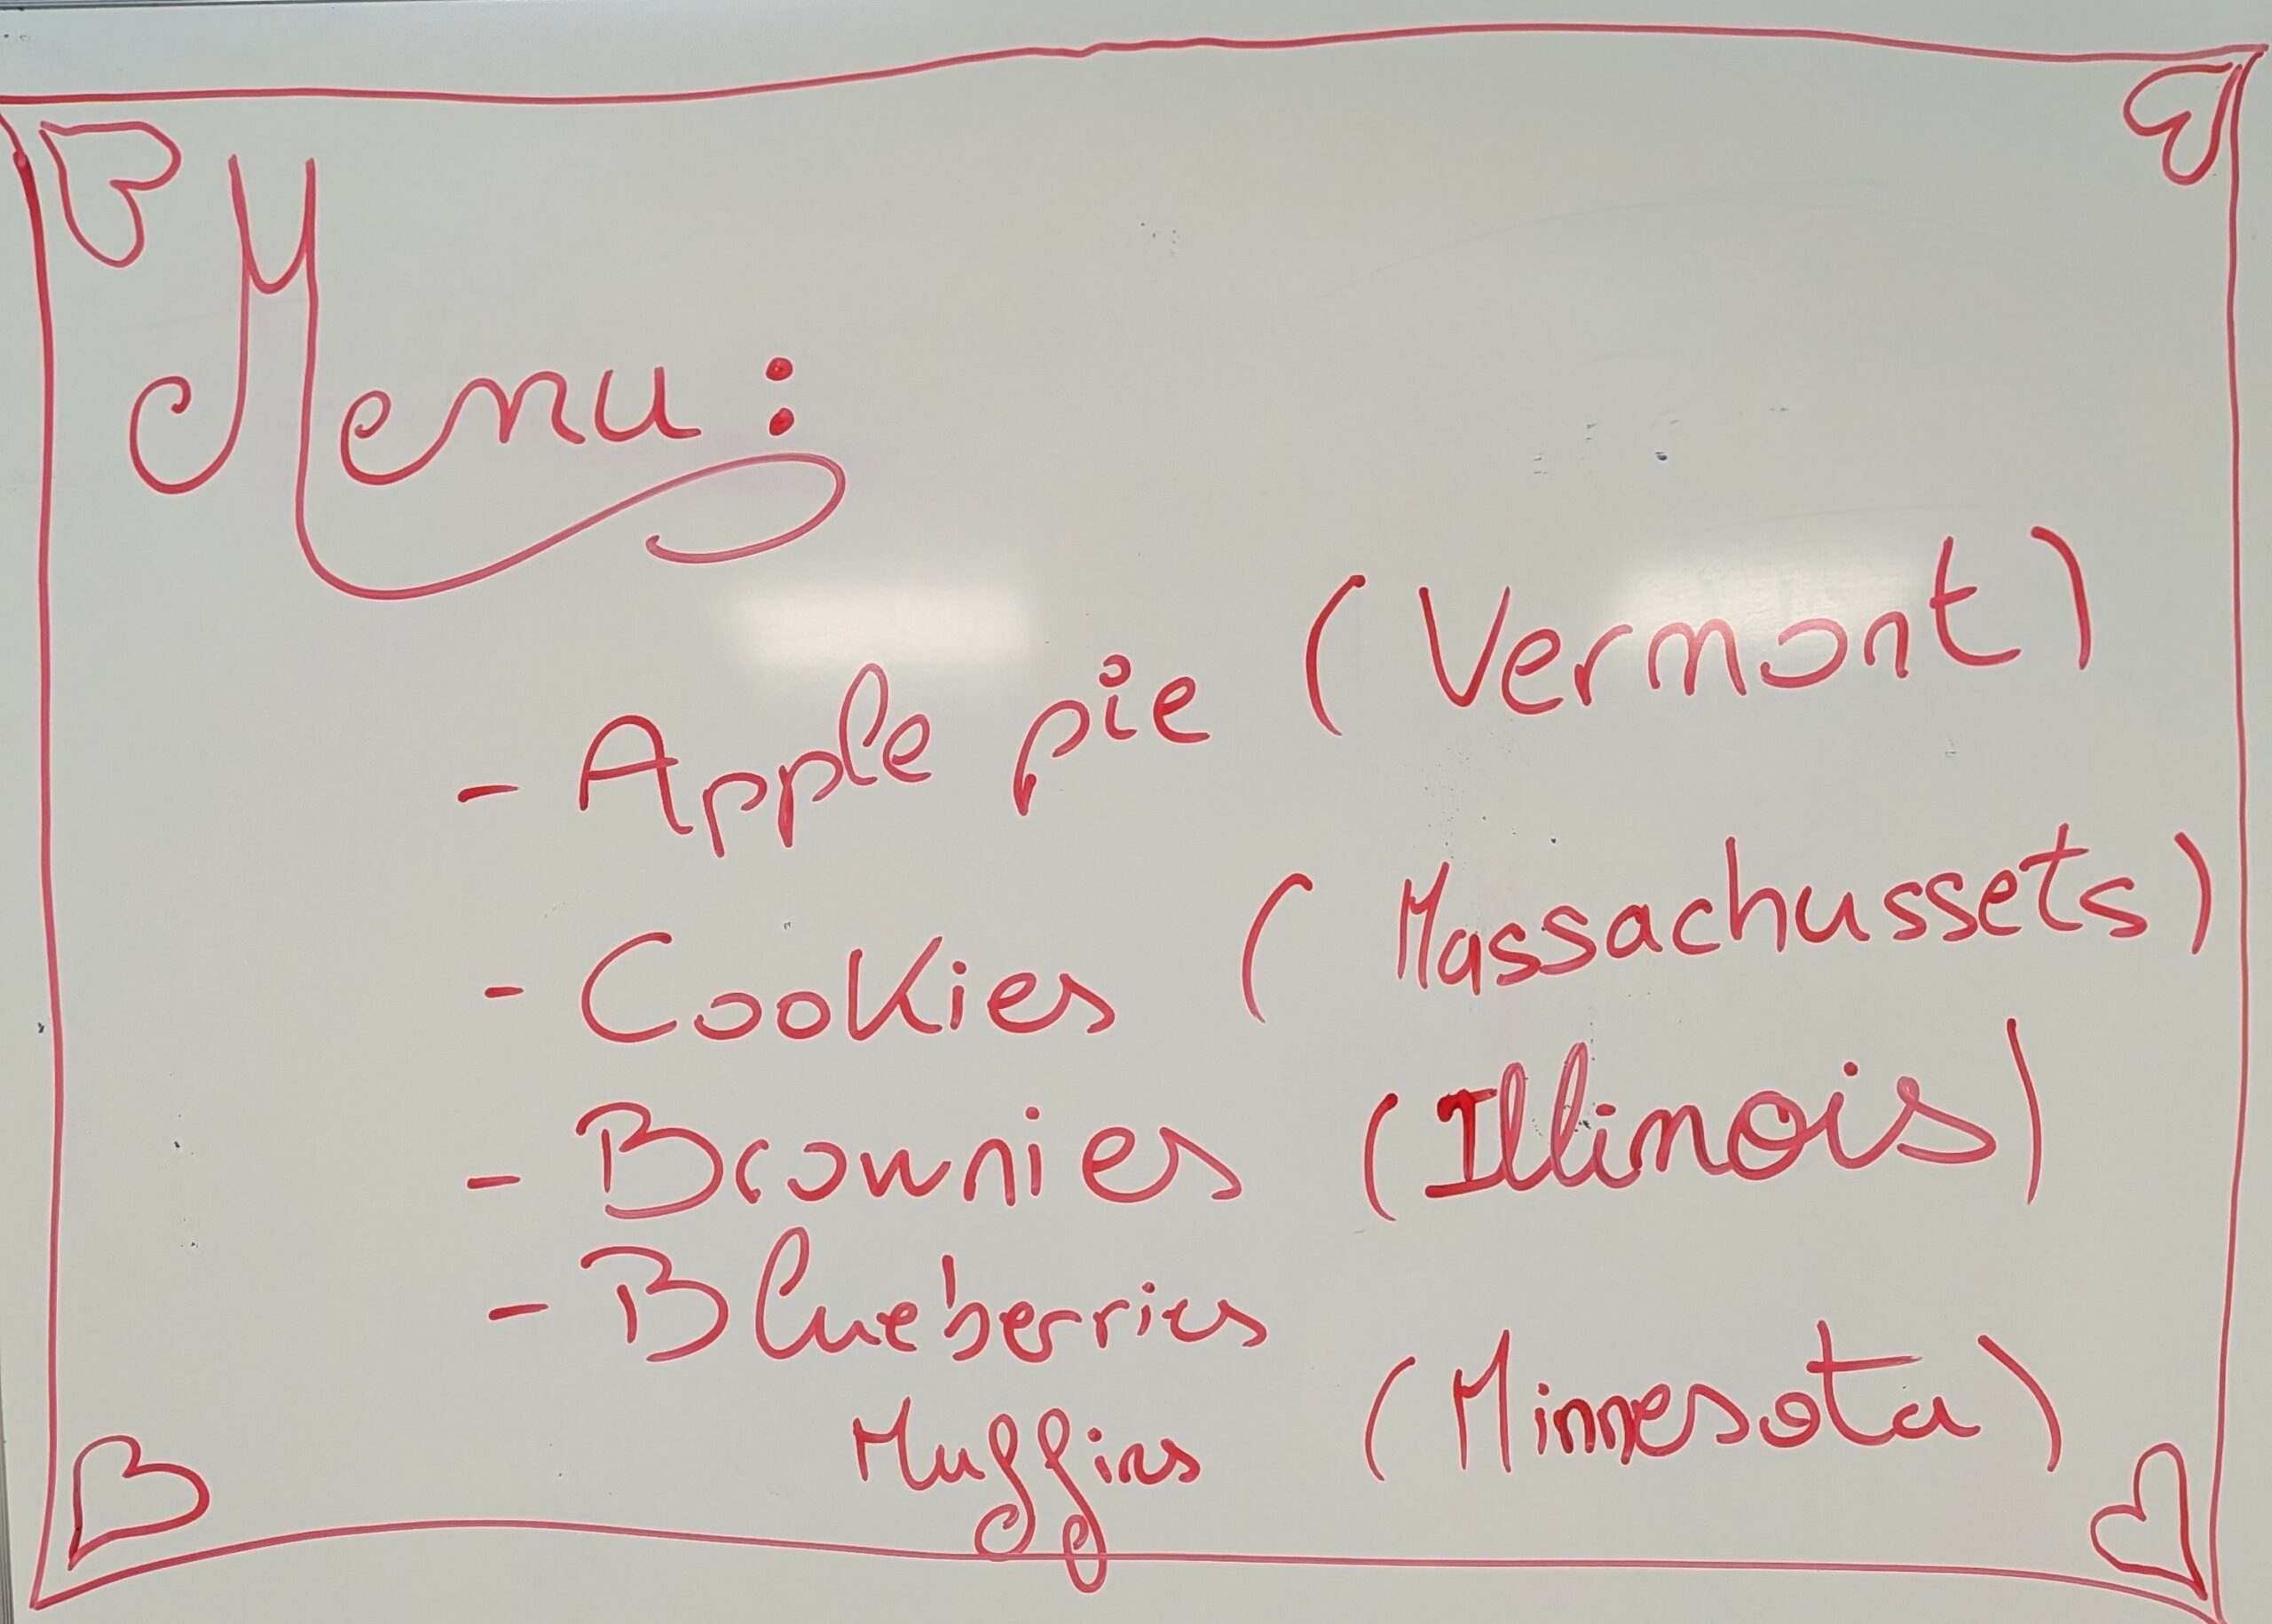 Menu :
- Apple pie (Vermont)
- Cookies (Massachussets)
- Brownies (Illinois)
- Blueberries
Muffins (Minnesota)